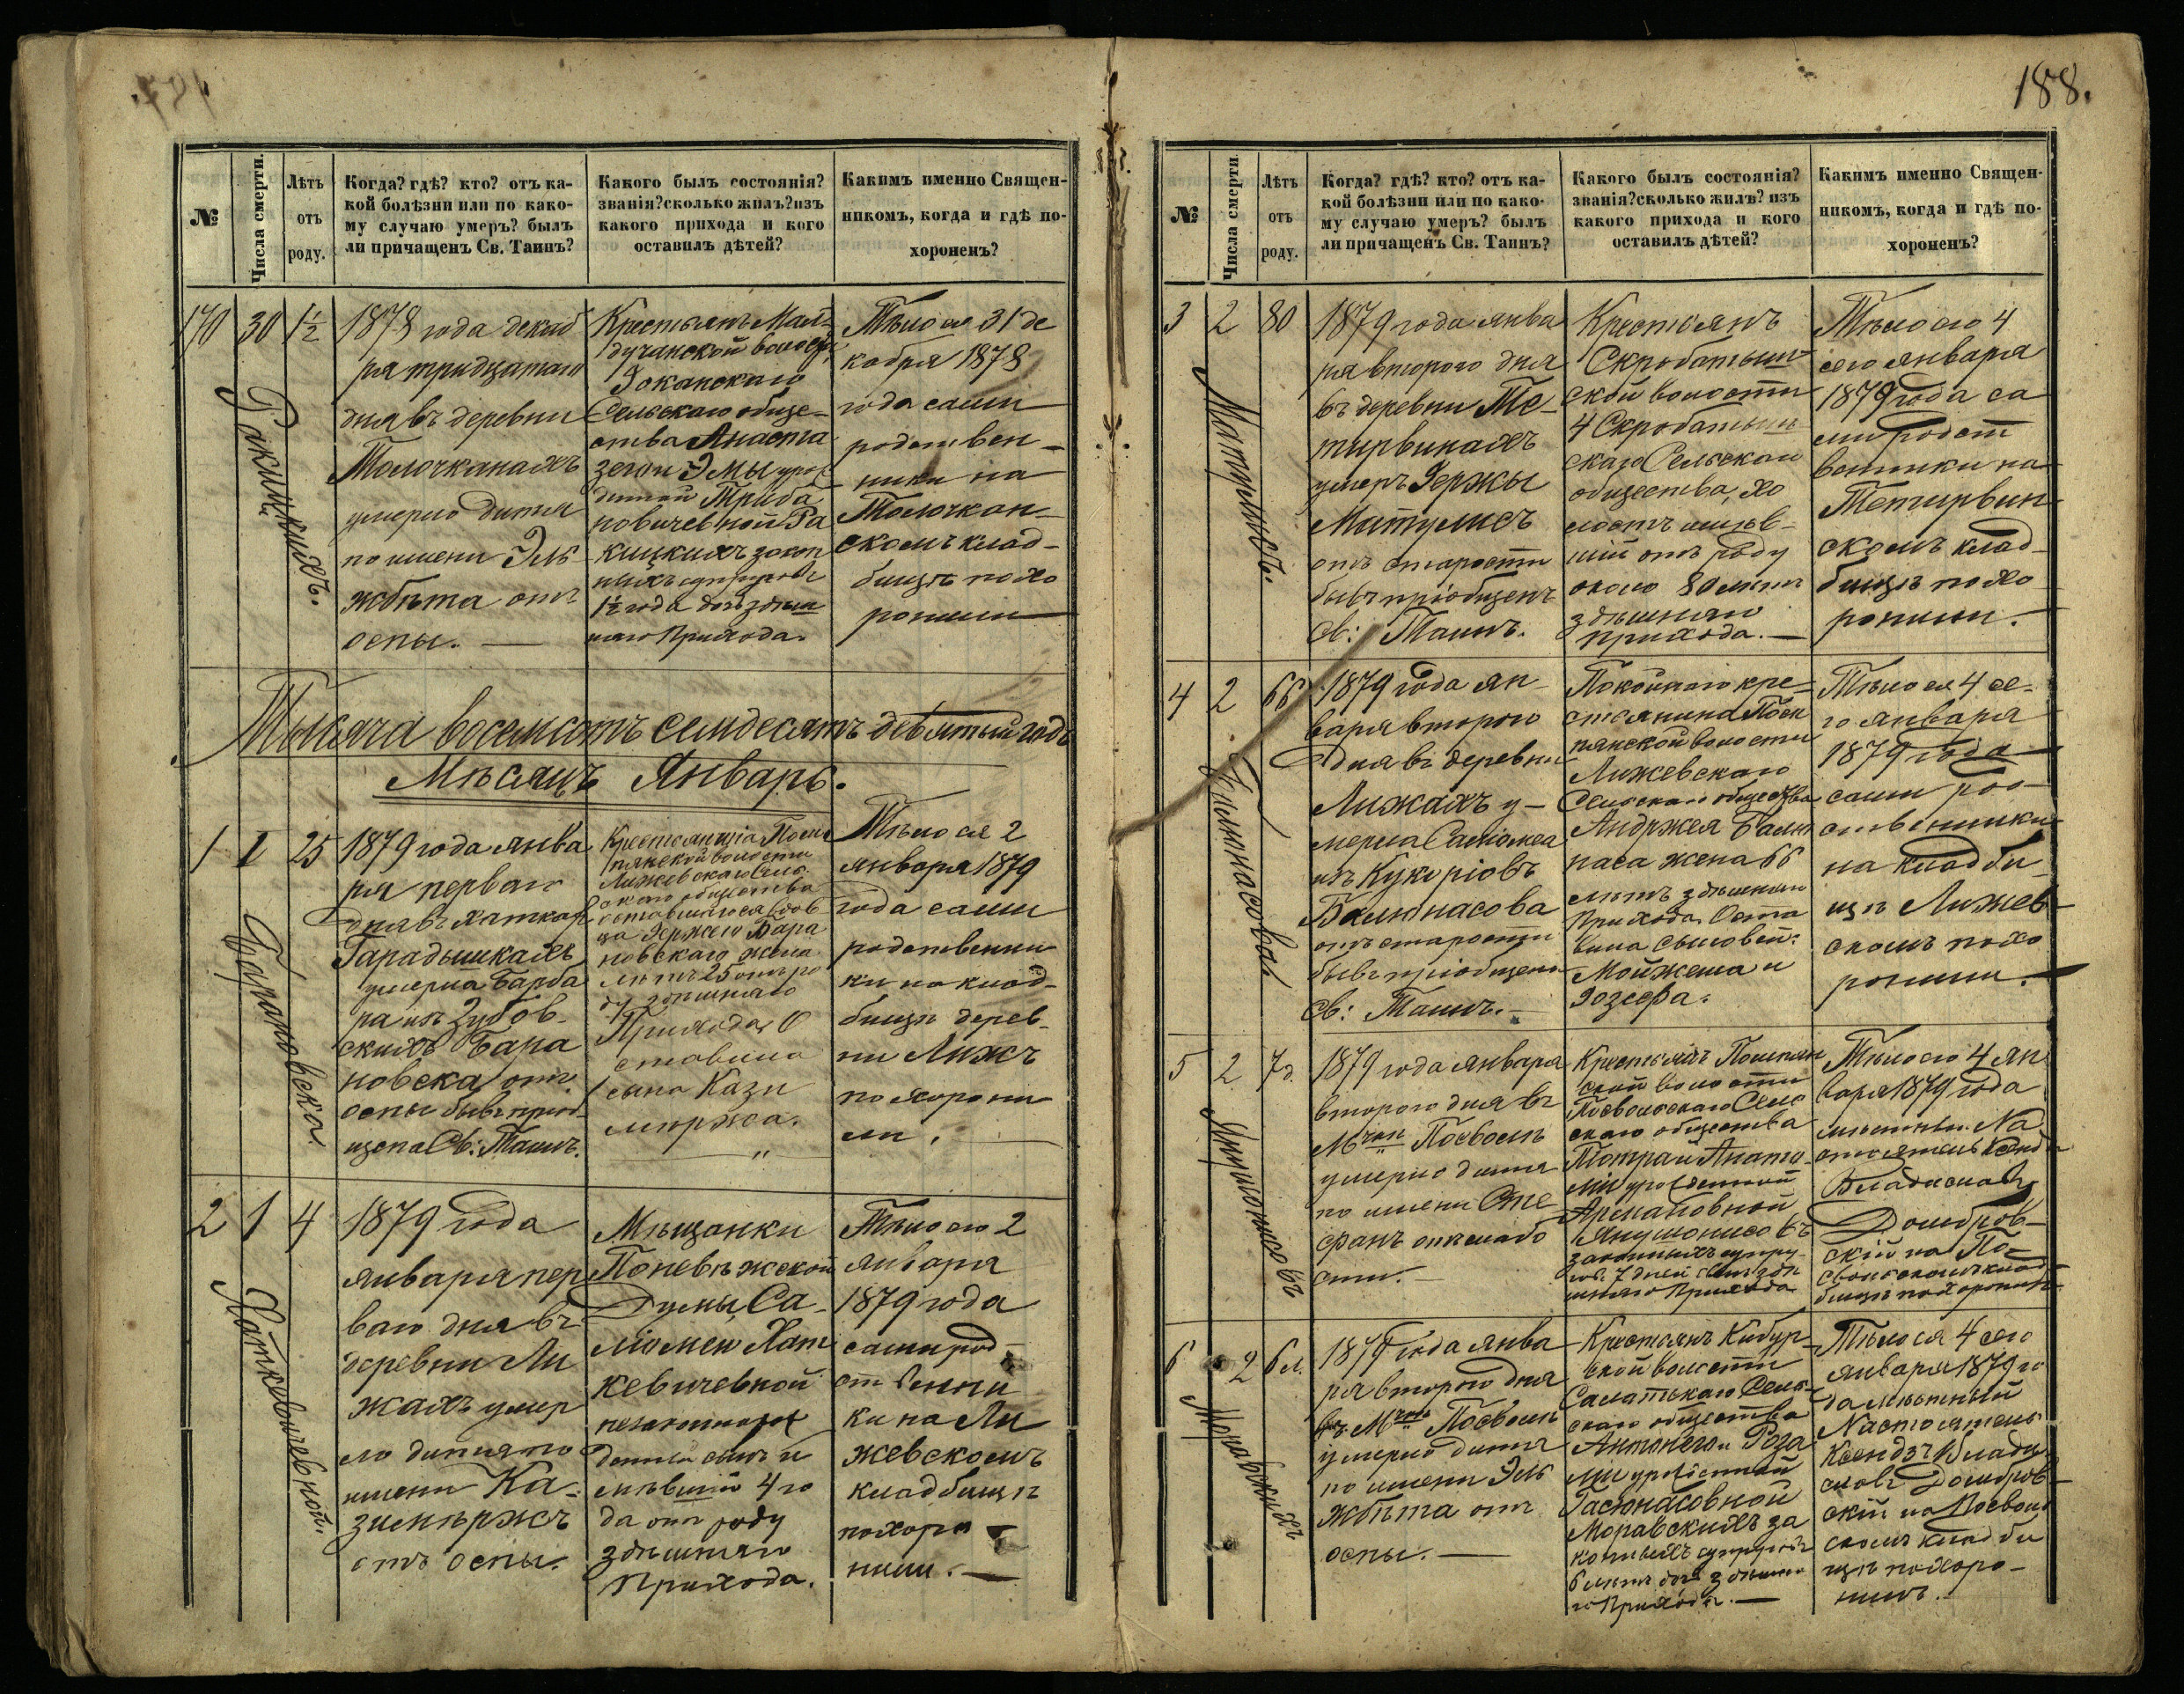 188.
№
Числа смерти.
Лѣтъ
отъ
роду.
Когда? гдѣ? кто? отъ ка-
кой болѣзни или по како-
му случаю умеръ? былъ
ли причащенъ Св. Таинъ?
Какого былъ состоянія?
званія? сколько жилъ? изъ
какого прихода и кого
оставилъ дѣтей?
Какимъ именно Священ-
никомъ, когда и гдѣ по-
хороненъ?
170
30
1½
Ракицкихъ.
1878 года декаб
ря тридцатаго
дня въ деревни
Толочканахъ
умерло дитя
по имени Эль
жбѣта отъ
оспы. —
Крестьянъ
волости
Сельскаго обще-
ства
Эмы урож
новичевной Ра
кицкихъ закон
ныхъ супруговъ
1½ года дочь здѣш
няго Прихода.
Тѣло ея 31 де
кабря 1878
года сами
родствен-
ники на
Толочкан-
скомъ клад-
бищѣ похо
ронили
Тысяча восемьсотъ семдесятъ девятый годъ
Мѣсяцъ Январь.
1
1
25
Барановска.
1879 года янва
ря перваго
дня въ
Гарадышкахъ
умерла Барба
ра изъ Зубов-
скихъ Бара
новска отъ
оспы бывъ пріоб
щена Св: Таинъ.
волости
Лижевскаго Сель
скаго общества
Бара
новскаго жена
лѣтъ 25 отъ ро
ду здѣшняго
Прихода. О
ставила
сына Кази
мержа.
"
Тѣло ея 2
января 1879
года сами
родственни
ки на клад-
бищѣ дерев-
ни Лижъ
похорони
ли.
2
1
4
Хаткевичевной.
1879 года
января пер
ваго дня въ
деревни Ли
жахъ умер
ло дитя по
имени Ка-
зимѣржъ
отъ оспы.
Мѣщанки
Поневѣжской
Думы, Са-
ломеи Хат
кевичевной
незаконнорож
денный сынъ и
мѣвшій 4 го
да отъ роду
здѣшняго
Прихода.
Тѣло его 2
января
1879 года
сами род-
ственни
ки на Ли
жевскомъ
кладбищѣ
похоро
нили. —
№
Числа смерти.
Лѣтъ
отъ
роду.
Когда? гдѣ? кто? отъ ка-
кой болѣзни или по како-
му случаю умеръ? былъ
ли причащенъ Св. Таинъ?
Какого былъ состоянія?
званія? сколько жилъ? изъ
какого прихода и кого
оставилъ дѣтей?
Какимъ именно Священ-
никомъ, когда и гдѣ по-
хороненъ?
3
2
80
1879 года янва
ря второго дня
въ деревни Те-
тирвинахъ
умеръ Ержы
Матулисъ
отъ старости
бывъ пріобщенъ
Св: Таинъ.
Крестьянъ
Скробатыш
ской волости
4 Скробатыш
скаго Сельскаго
общества, хо
лостъ имѣв-
шій отъ роду
около 80 лѣтъ
здѣшняго
прихода. —
Тѣло его 4
сего января
1879 года са
ми родст
венники на
Тетирвин
скомъ клад-
бищѣ похо
ронили. —
4
2
66
Балюнасова
1879 года ян-
варя второго
дня въ деревни
Лижахъ у-
мерла Саломея
изъ Кукоріовъ
Балюнасова
отъ старости
бывъ пріобщена
Св: Таинъ. —
Покойнаго кре-
стьянина
волости
Лижевскаго
Сельскаго общества
Андржея Балю
наса жена 66
лѣтъ здѣшняго
Прихода. Оста
вила сыновей:
Мойжеша и
Юзефа.
Тѣло ея 4 се-
го января
1879 года
сами род-
ственники
на кладби
щѣ Лижев-
скомъ похо
ронили. —
5
2
7 д.
Янушонисовъ
1879 года января
второго дня въ
Мчкѣ Посволѣ
умерло дитя
по имени Сте
фанъ отъ слабо
сти. —
Крестьянъ
волости
Посвольскаго Сель
скаго общества
урожденной
Армановной
Янушонисовъ
законныхъ супру-
говъ 7 дней сынъ здѣ
шняго Прихода
Тѣло его 4 ян
варя 1879 года
мѣстный На
стоятель Ксендзъ
Владиславъ
Домбров-
скій на По-
свольскомъ клад
бищѣ похоронилъ
6
2
6 л.
Моравскихъ
1879 года янва
ря второго дня
въ Мчкѣ Посволѣ
умерло дитя
по имени Эль
жбѣта отъ
оспы. —
Крестьянъ Кибур-
ской волости
Сель-
скаго общества
Антонего и Роза
ліи урожденной
Гасюнасовной
Моравскихъ за
конныхъ супруговъ
6 лѣтъ дочь здѣшня
го Прихода. —
Тѣло ея 4 сего
января 1879 го
да мѣстный
Настоятель
Ксендзъ Влади
славъ Домбров-
скій на Посволь
скомъ кладби
щѣ похоро-
нилъ.